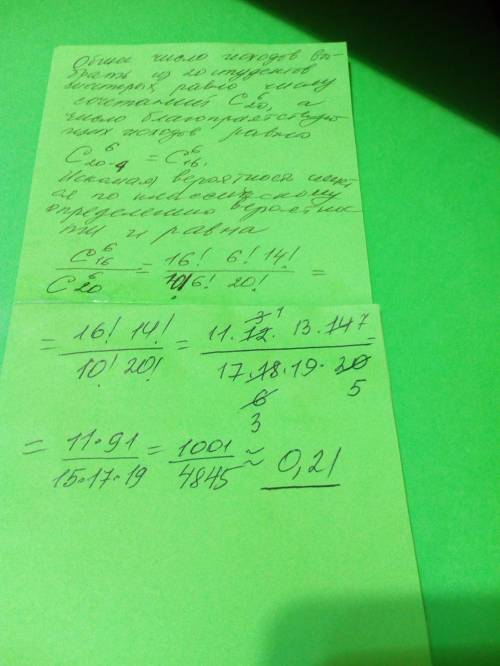 Общее число исходов вы-
брать из 20 студентов
шестерых, равно числу
сочетаний C₂₀⁶, а
число благоприятствую
щих исходов равно
C₂₀₋₄⁶ = C₁₆⁶.
Искомая вероятность
по классическому
определению вероятнос
ти и равна
C₁₆⁶ / C₂₀⁶ = 16! 6! 14! / 10! 6! 20! =
= 16! 14! / 10! 20! = 11 · 12 · 13 · 14 7 / 17 · 18 · 19 · 20 =
= 11 · 91 / 15 · 17 · 19 = 1001 / 4845 ≈ 0,21